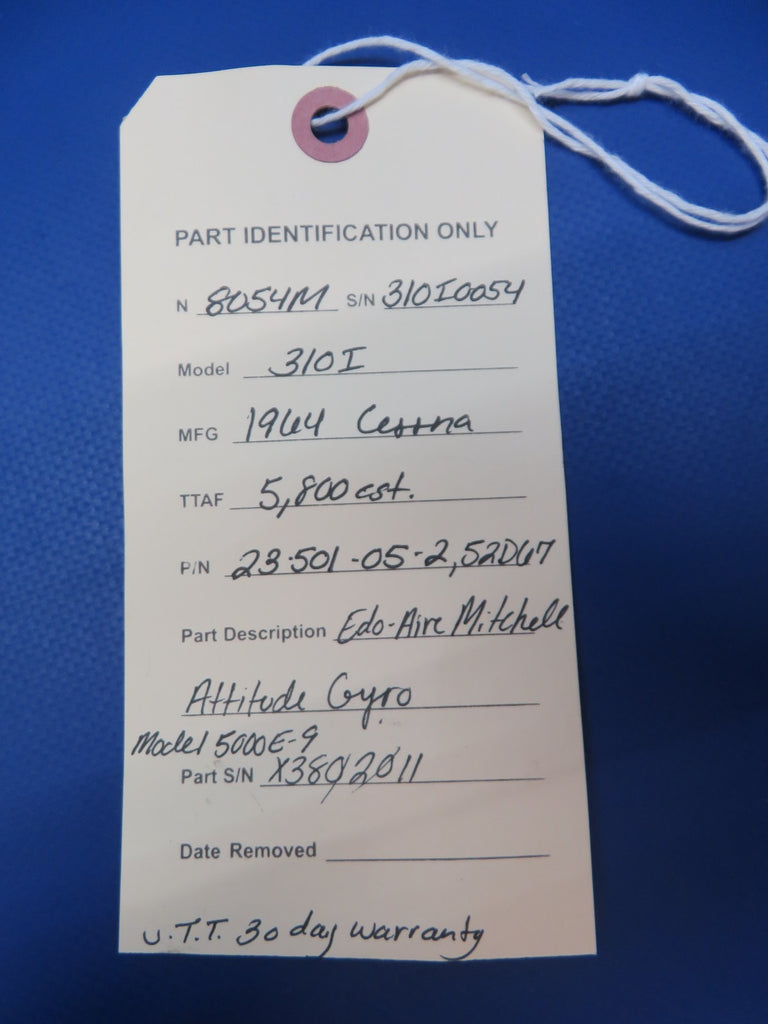 PART IDENTIFICATION ONLY
N 8054M S/N 310I0054
Model 310I
MFG 1964 Cessna
TTAF 5,800 est.
P/N 23-501-05-2, 52D67
Part Description Edo-Aire Mitchell
Attitude Gyro
Model 5000E-9
Part S/N X3802011
Date Removed
U.T.T. 30 day warranty